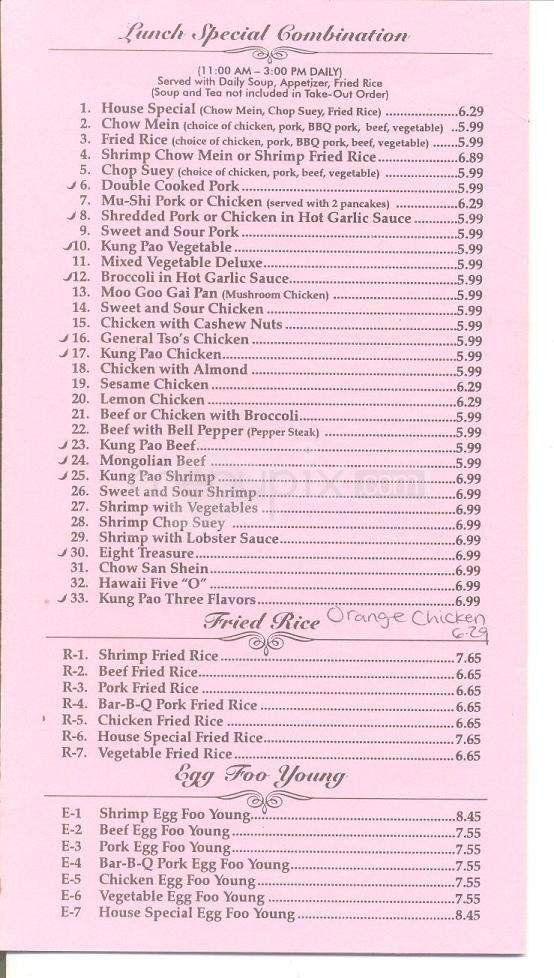 Lunch Special Combination
(11:00 AM – 3:00 PM DAILY)
Served with Daily Soup, Appetizer, Fried Rice
(Soup and Tea not included in Take-Out Order)
1. House Special (Chow Mein, Chop Suey, Fried Rice) ..................6.29
2. Chow Mein (choice of chicken, pork, BBQ pork, beef, vegetable) ..5.99
3. Fried Rice (choice of chicken, pork, BBQ pork, beef, vegetable) .......5.99
4. Shrimp Chow Mein or Shrimp Fried Rice....................6.89
5. Chop Suey (choice of chicken, pork, beef, vegetable) ..................5.99
6. Double Cooked Pork..................5.99
7. Mu-Shi Pork or Chicken (served with 2 pancakes) ..................6.29
8. Shredded Pork or Chicken in Hot Garlic Sauce ..........5.99
9. Sweet and Sour Pork..................5.99
10. Kung Pao Vegetable..................5.99
11. Mixed Vegetable Deluxe..................5.99
12. Broccoli in Hot Garlic Sauce..................5.99
13. Moo Goo Gai Pan (Mushroom Chicken) ..................5.99
14. Sweet and Sour Chicken ..................5.99
15. Chicken with Cashew Nuts ..................5.99
16. General Tso's Chicken ..................5.99
17. Kung Pao Chicken..................5.99
18. Chicken with Almond ..................5.99
19. Sesame Chicken ..................6.29
20. Lemon Chicken ..................6.29
21. Beef or Chicken with Broccoli..................5.99
22. Beef with Bell Pepper (Pepper Steak) ..................5.99
23. Kung Pao Beef..................5.99
24. Mongolian Beef ..................5.99
25. Kung Pao Shrimp ..................6.99
26. Sweet and Sour Shrimp..................6.99
27. Shrimp with Vegetables ..................6.99
28. Shrimp Chop Suey ..................6.99
29. Shrimp with Lobster Sauce..................6.99
30. Eight Treasure..................6.99
31. Chow San Shein..................6.99
32. Hawaii Five "O" ..................6.99
33. Kung Pao Three Flavors..................6.99
Orange Chicken
6.29
Fried Rice
R-1. Shrimp Fried Rice ..................7.65
R-2. Beef Fried Rice..................6.65
R-3. Pork Fried Rice ..................6.65
R-4. Bar-B-Q Pork Fried Rice ..................6.65
R-5. Chicken Fried Rice ..................6.65
R-6. House Special Fried Rice..................7.65
R-7. Vegetable Fried Rice..................6.65
Egg Foo Young
E-1 Shrimp Egg Foo Young..................8.45
E-2 Beef Egg Foo Young..................7.55
E-3 Pork Egg Foo Young..................7.55
E-4 Bar-B-Q Pork Egg Foo Young..................7.55
E-5 Chicken Egg Foo Young..................7.55
E-6 Vegetable Egg Foo Young ..................7.55
E-7 House Special Egg Foo Young ..................8.45